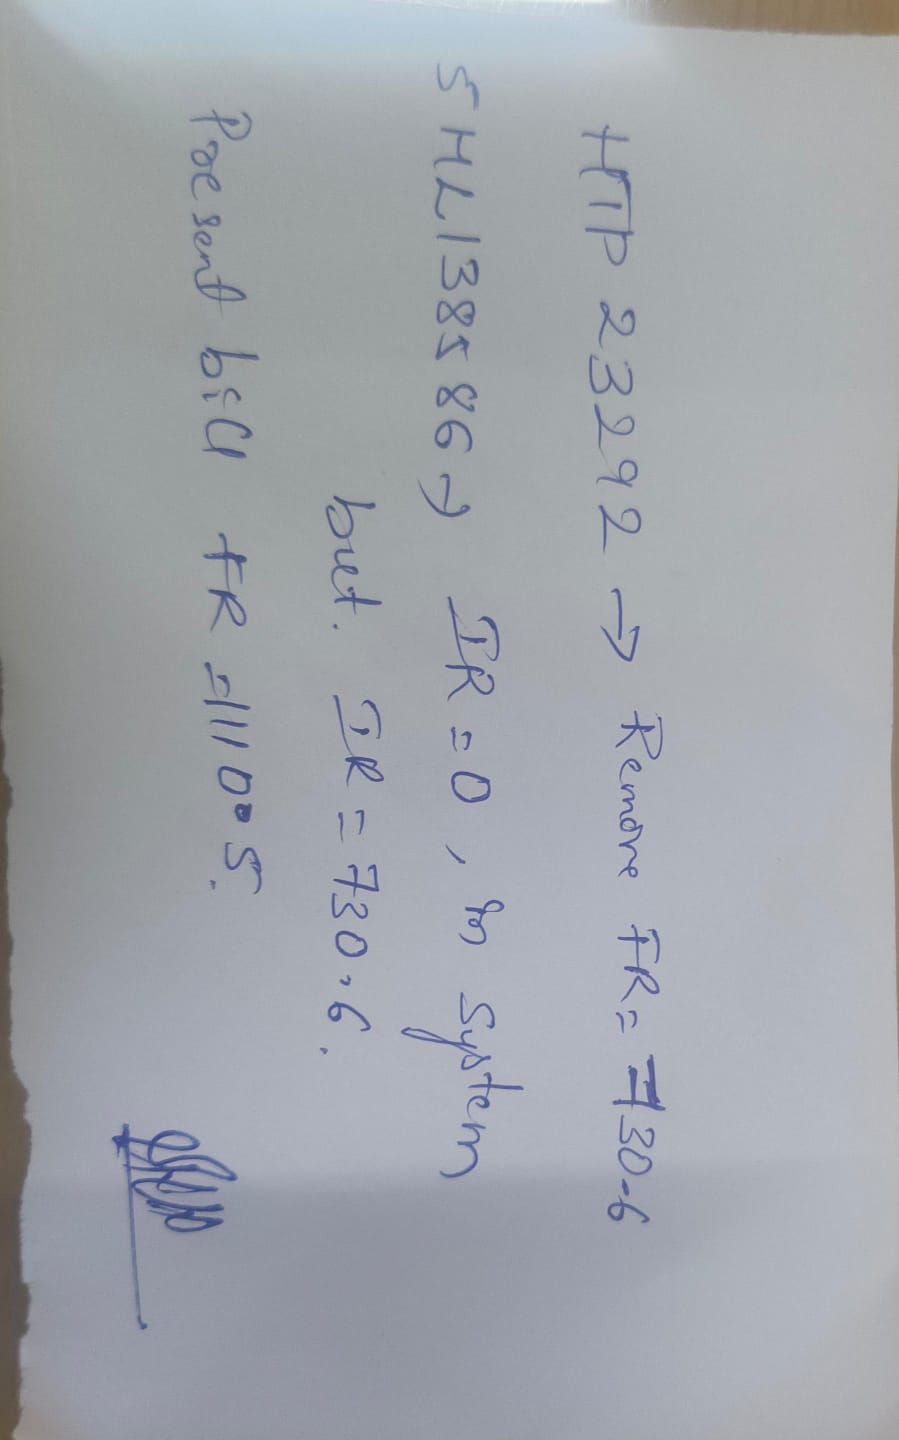 HTP 23292 → Remove FR = 730.6
SHL138586 → IR = 0, in system
but. IR = 730.6.
Present bill FR = 1110.5.